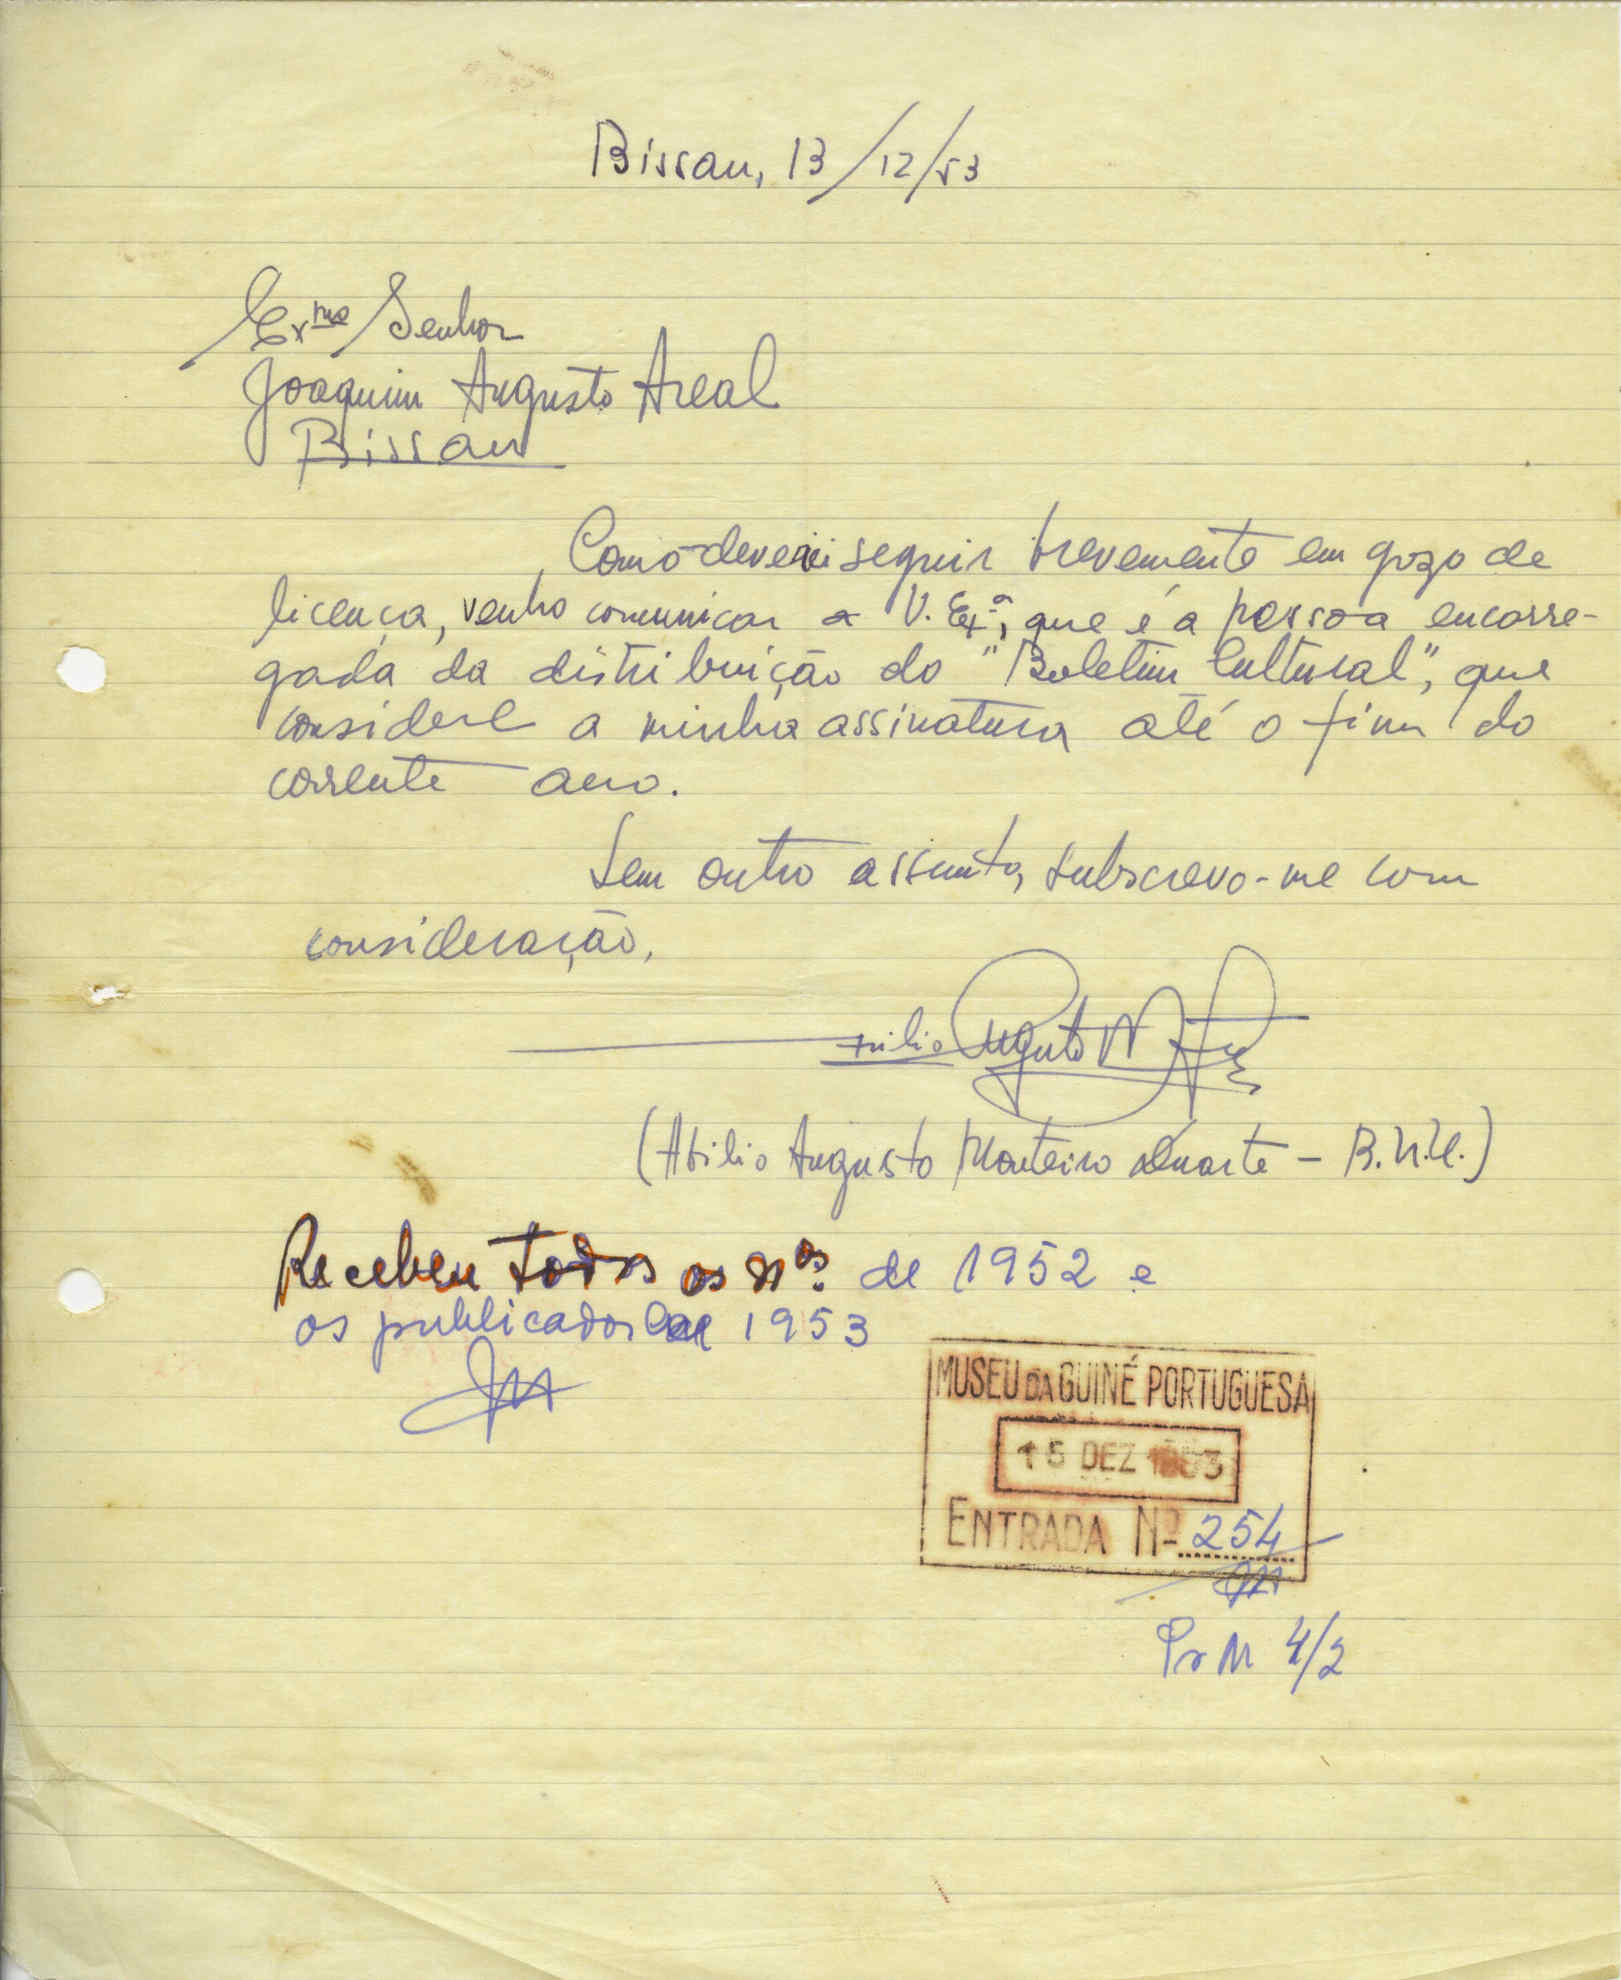 Bissau, 13/12/53
Exmo Senhor
Joaquim Augusto Areal
Bissau
Como deverei seguir brevemente em gozo de
licença, venho comunicar a V. Ex.ª, que é a pessoa encarre-
gada da distribuição do "Boletim Cultural", que
considere a minha assinatura até o fim do
corrente ano.
Sem outro assunto, subscrevo-me com
consideração,
Abilio Augusto M
(Abilio Augusto Monteiro Duarte - B.N.U.)
Recebeu todos os nos. de 1952 e
os publicados de 1953
MUSEU DA GUINÉ PORTUGUESA
15 DEZ 1953
ENTRADA Nº 254
Pr M 4/2